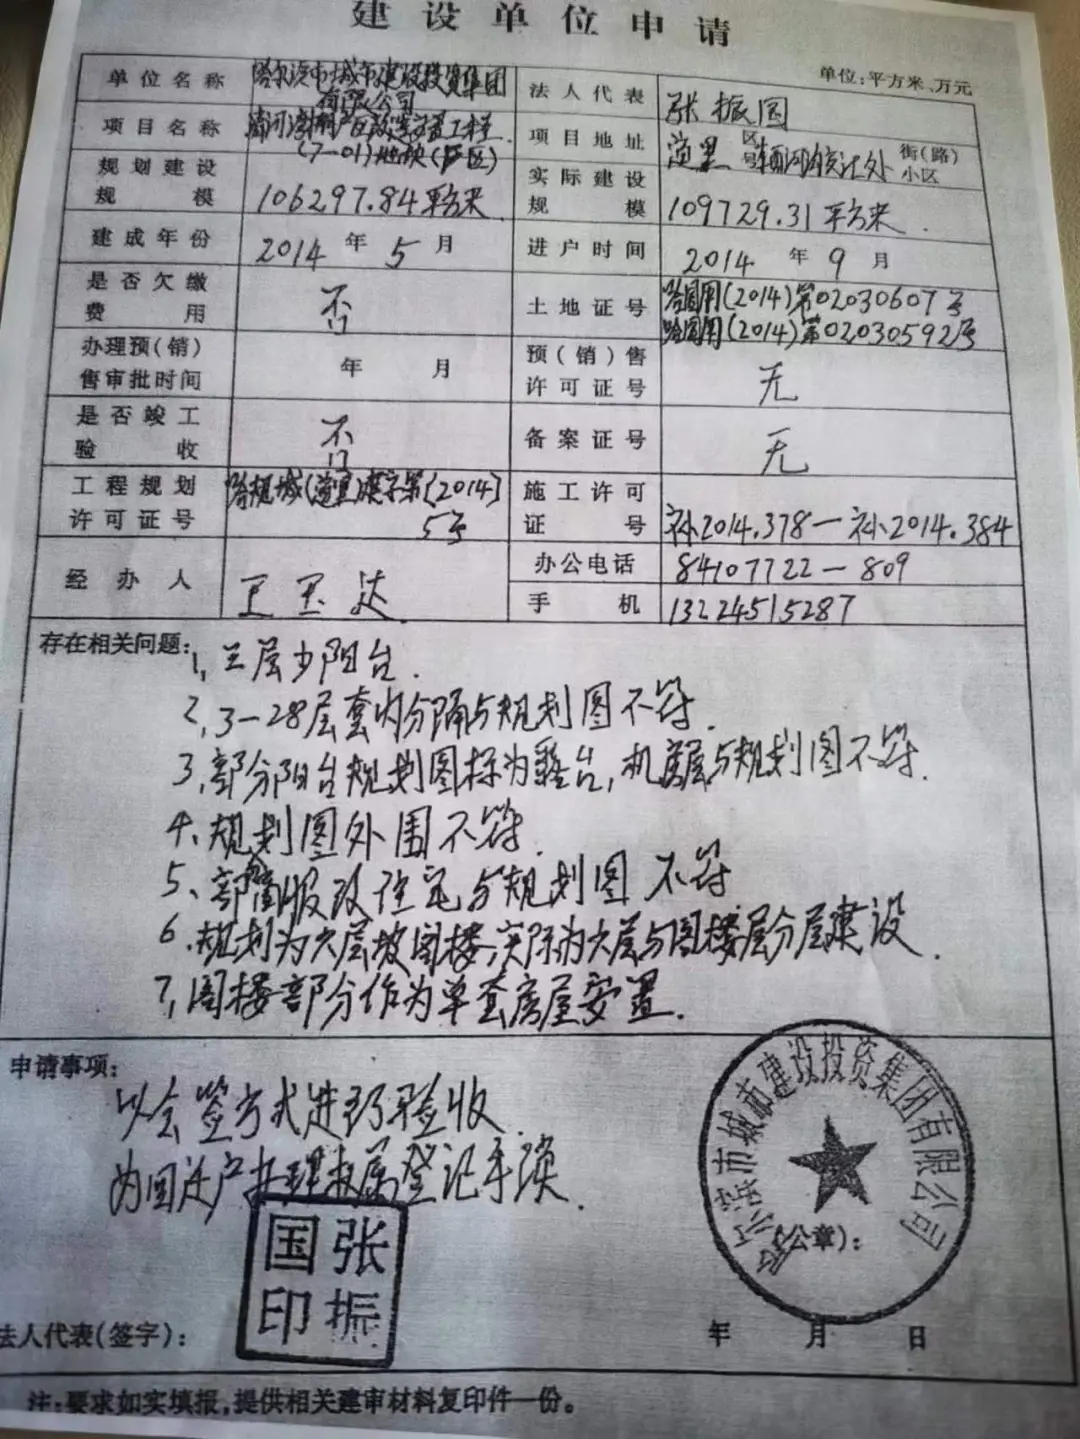 建设单位申请
单位:平方米、万元
单位名称 哈尔滨市城市建设投资集团有限公司 法人代表 张振国
项目名称 棚户区改造安置工程 (7-01)地块(厂区) 项目地址 道里 区 号 街(路) 小区
规划建设规模 106297.84平方米 实际建设规模 109729.31平方米.
建成年份 2014年5月 进户时间 2014年9月
是否欠缴费用 否 土地证号 哈国用(2014)第02030607号
哈国用(2014)第02030592号
办理预(销)售审批时间 年 月 预(销)售许可证号 无
是否竣工验收 否 备案证号 无
工程规划许可证号 哈规城(道里)建字第[2014]5号 施工许可证号 补2014.378—补2014.384
经办人 王玉达 办公电话 84107722—809
手机 13224515287
存在相关问题:
1,三层少阳台.
2,3-28层套内分隔与规划图不符.
3,部分阳台规划图标为露台,机房层与规划图不符.
4、规划图外围不符.
5、部分商服改住宅与规划图不符
6.规划为六层坡阁楼,实际为六层与阁楼层分层建设.
7,阁楼部分作为单套房屋安置.
申请事项:
以会签方式进行验收.
为回迁户办理权属登记手续.
哈尔滨市城市建设投资集团有限公司
(公章):
张振国印
法人代表(签字):
年 月 日
注:要求如实填报,提供相关建审材料复印件一份。